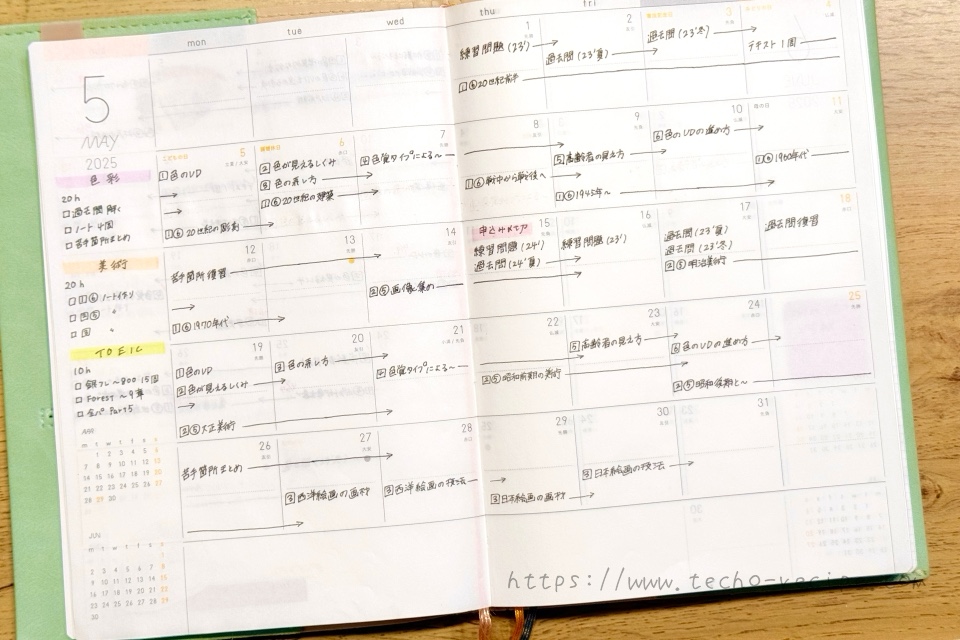 mon
tue
wed
thu
fri
5
MAY
2025
色彩
20h
□過去問解く
□ノート4周
□苦手箇所まとめ
美術
20h
TOEIC
10h
□銀フレ〜800 15周
□Forest 〜9章
□金パ Part5
1
練習問題(23')
①⑥20世紀前半
2
過去問(23'夏)
3
過去問(23'冬)
4
テキスト1周
こどもの日
5
1 色のUD
1⑥ 20世紀の彫刻
振替休日
6
2 色が見えるしくみ
3 色の表し方
1⑥ 20世紀の建築
7
4 色覚タイプによる〜
8
1⑥戦中から戦後へ
9
5 高齢者の見え方
1⑥1945年〜
10
6 色のUDの進め方
母の日
11
1⑥1960年代
12
苦手箇所復習
1⑥1970年代
13
14
2⑤画像集め
15
申込み〆切
練習問題(24')
過去問(24'夏)
16
練習問題(23')
17
過去問(23'夏)
過去問(23'冬)
2⑤明治美術
18
過去問復習
19
1 色のUD
2 色が見えるしくみ
2⑤大正美術
20
3 色の表し方
21
4 色覚タイプによる〜
22
2⑤昭和前期の美術
23
5 高齢者の見え方
24
6 色のUDの進め方
2⑤昭和後期と〜
25
26
苦手箇所まとめ
27
3 西洋絵画の画材
28
3 西洋絵画の技法
29
3 日本絵画の画材
30
3 日本絵画の技法
31
JUN
https://www.techo-